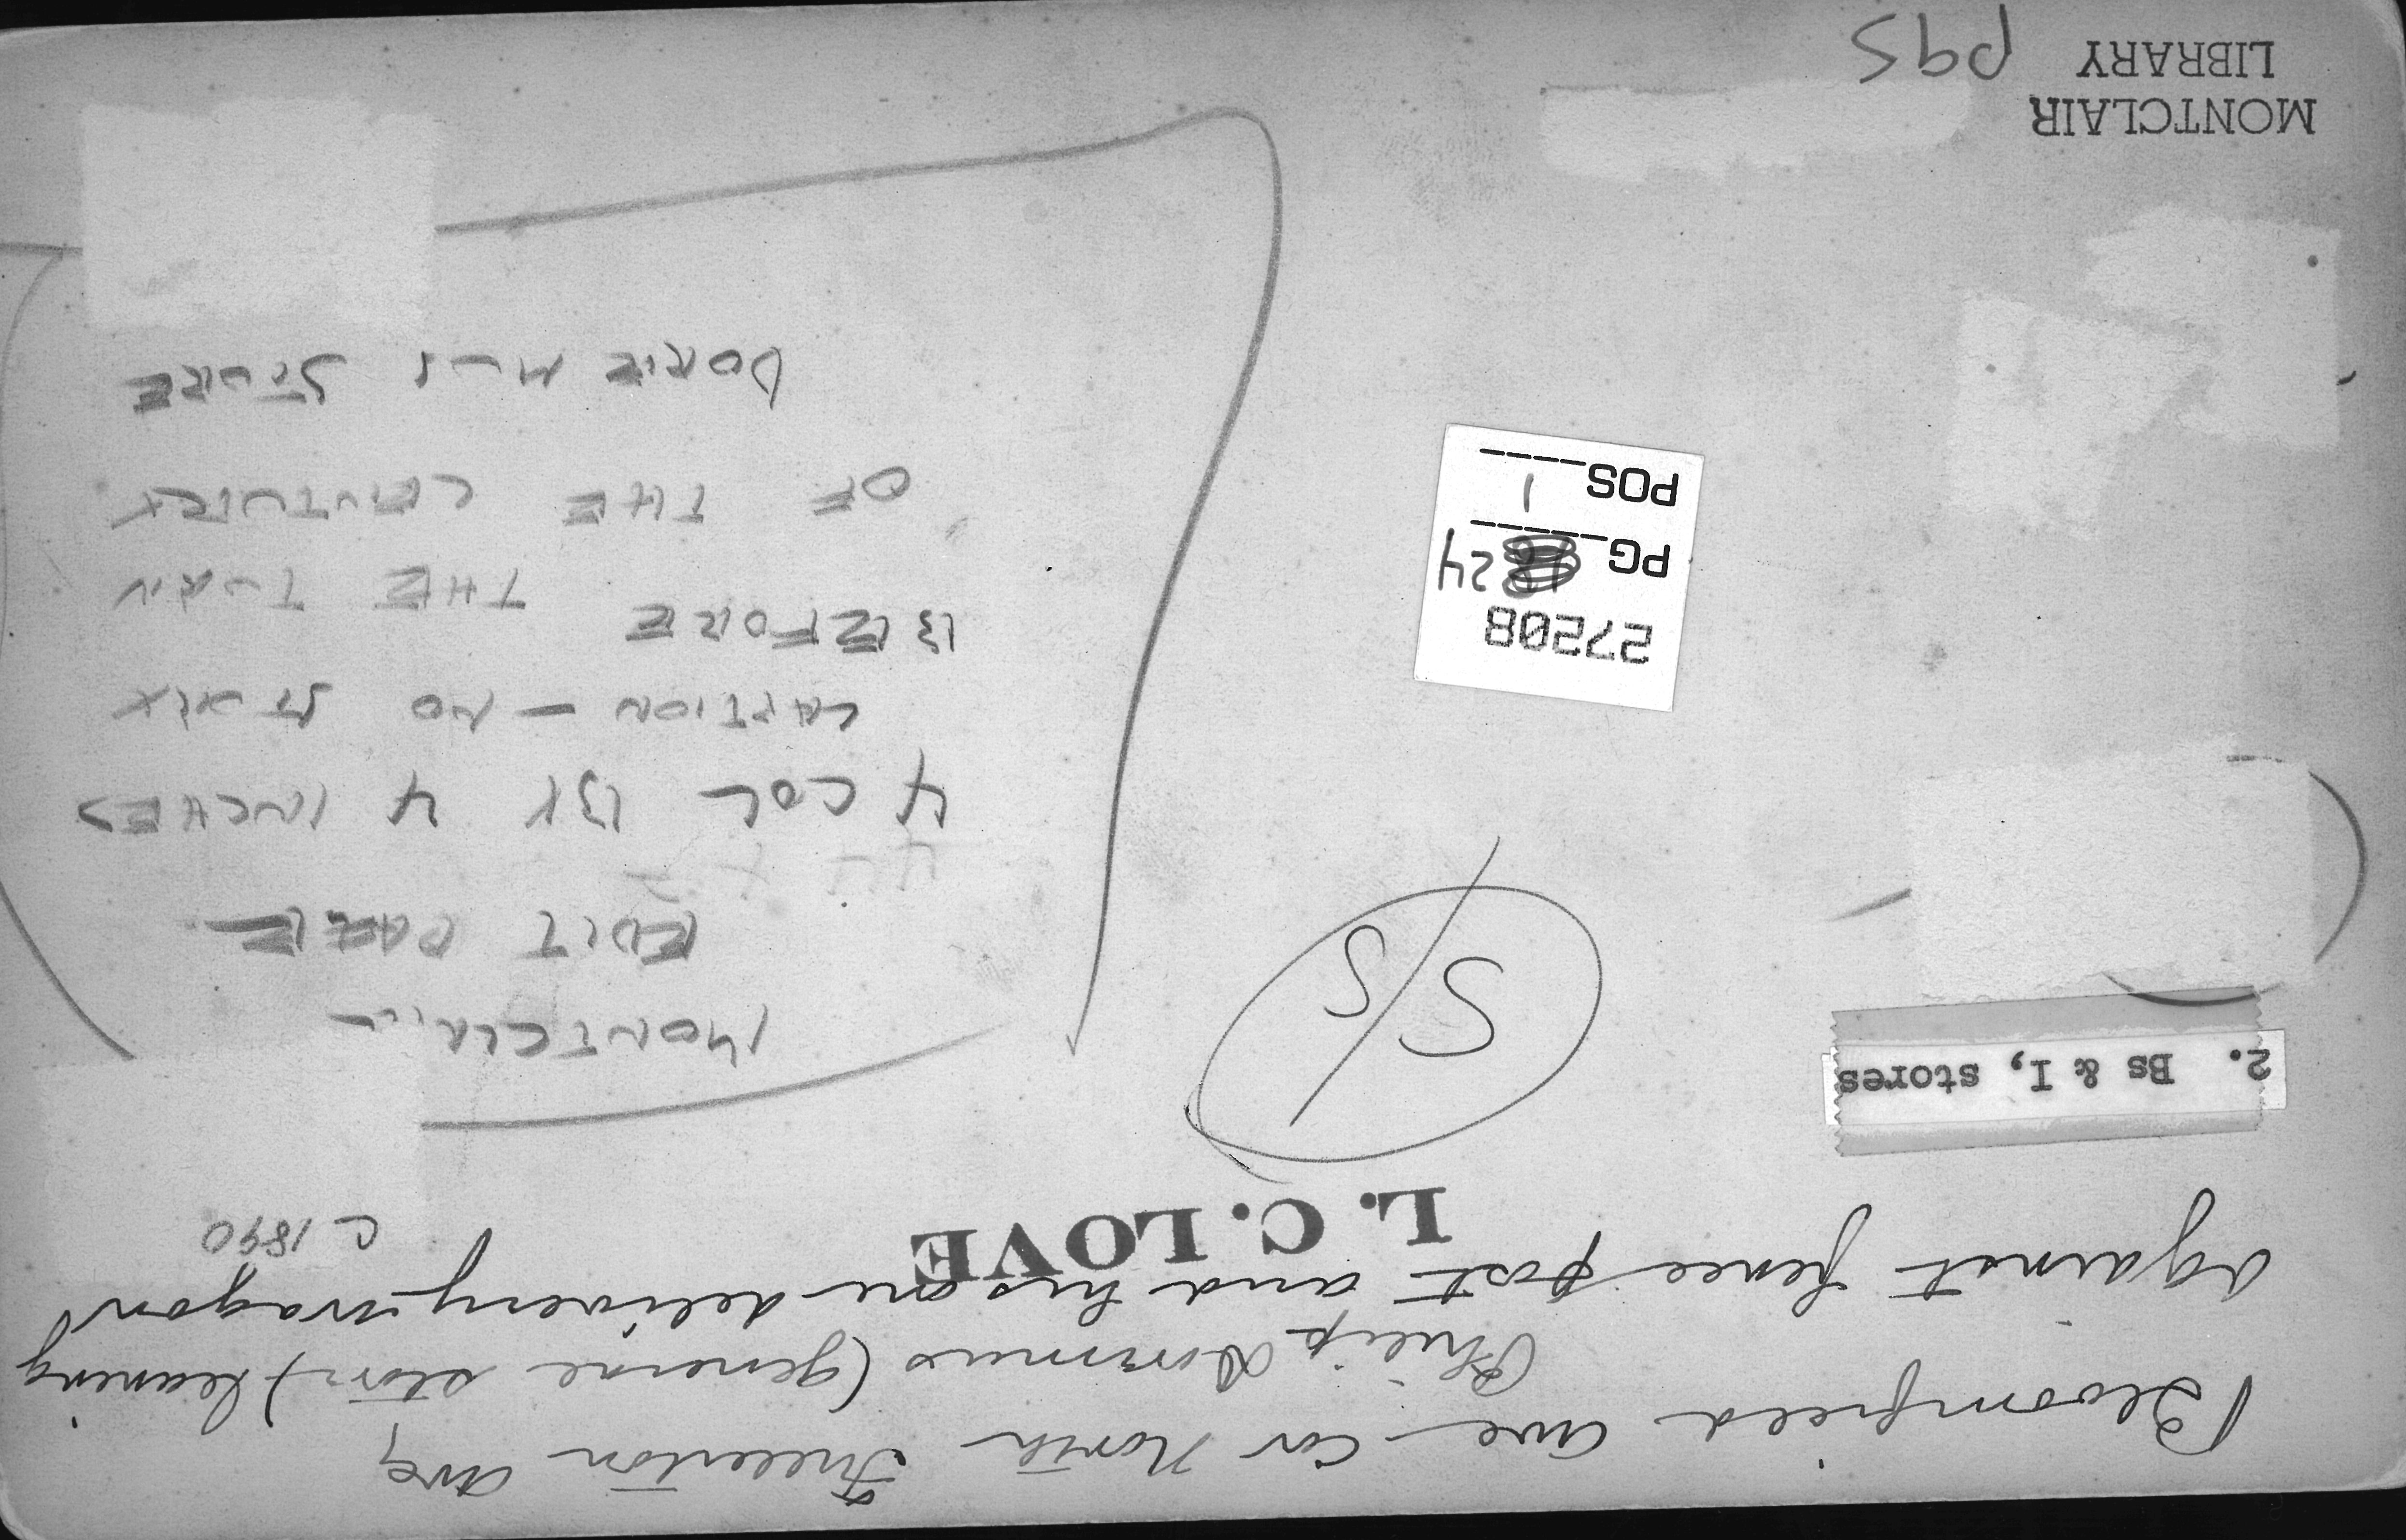 Bloomfield ave cor North Fullerton ave,
Philip Doremus (general store) leaning
against fence post and his one delivery-wagon
C 1890
L. C. LOVE
2. Bs & I, stores
S/S
MONTCLAIR
EDIT PAGE
4 COL BY 4 INCHES
CAPTION - NO STORY
BEFORE THE TURN
OF THE CENTURY
DOREMUS STORE
27208
PG 24
POS 1
MONTCLAIR
LIBRARY
p95